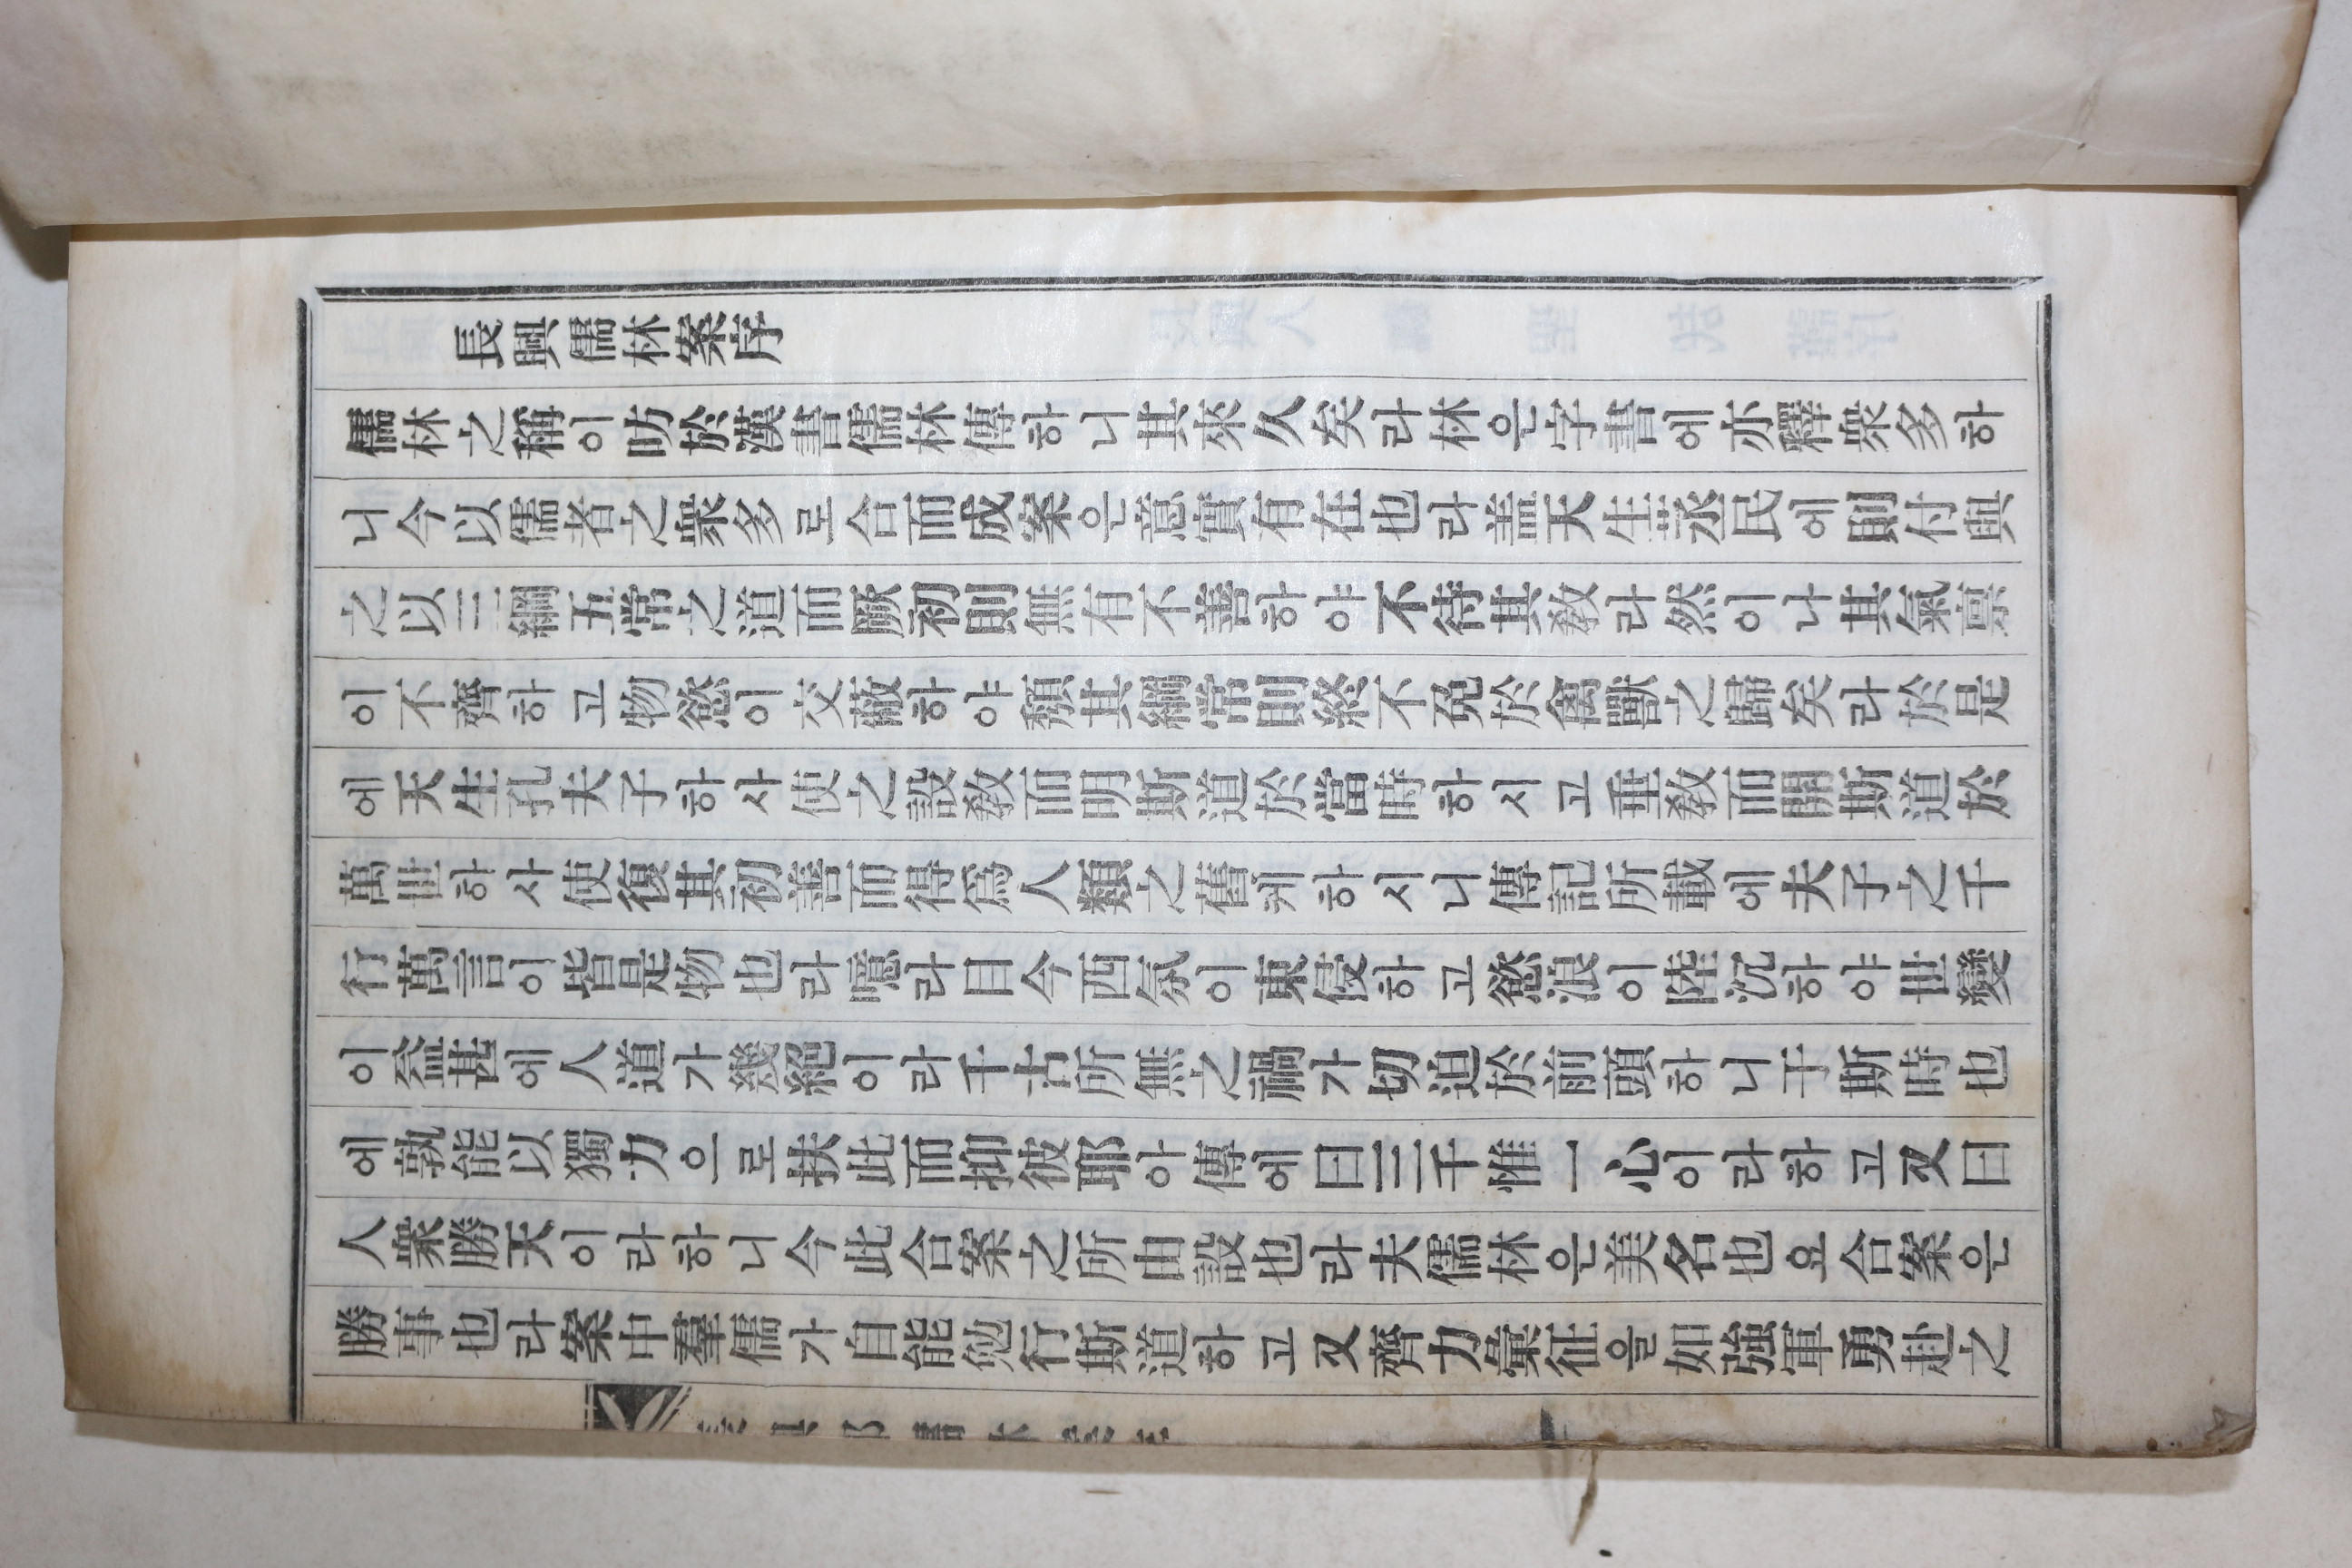 長興儒林案序
儒林之稱이昉於漢書儒林傳하니其來久矣라林은字書에亦釋衆多하
니今以儒者之衆多로合而成案은意實有在也라盖天生烝民에則付與
之以三綱五常之道而厥初則無有不善하야不待其敎라然이나其氣稟
이不齊하고物慾이交蔽하야頹其綱常則終不免於禽獸之歸矣라於是
에天生孔夫子하사使之設敎而明斯道於當時하시고垂敎而開斯道於
萬世하사使復其初善而得爲人類之舊케하시니傳記所載에夫子之千
行萬言이皆是物也라噫라目今西氛이東侵하고慾浪이陸沉하야世變
이益甚에人道가幾絕이라千古所無之禍가切迫於前頭하니于斯時也
에孰能以獨力으로扶此而抑彼耶아傳에曰三千惟一心이라하고又曰
人衆勝天이라하니今此合案之所由設也라夫儒林은美名也요合案은
勝事也라案中羣儒가自能勉行斯道하고又齊力彙征을如強軍勇赴之